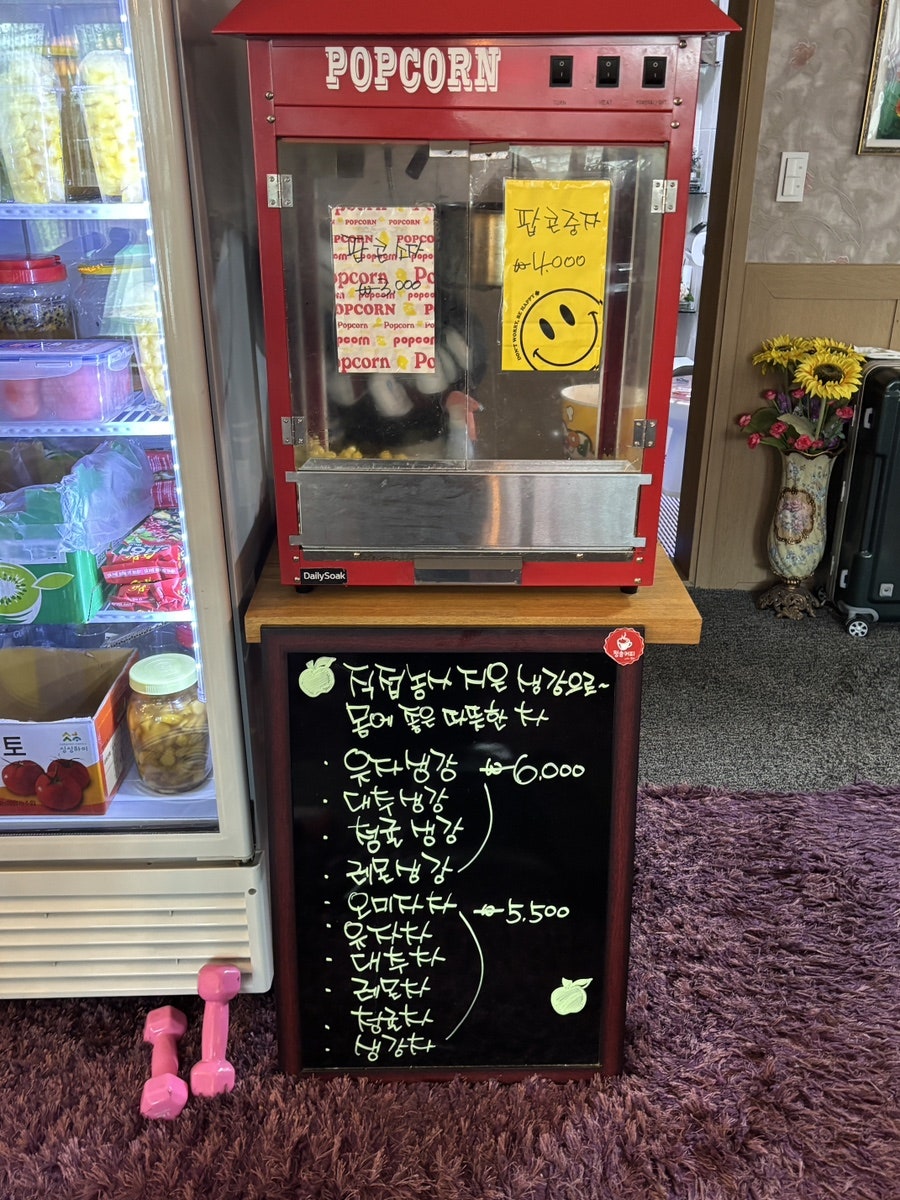 POPCORN
팝콘소자
₩3,000
팝콘중자
₩4,000
DON'T WORRY, BE HAPPY
DailySoak
직접 농사 지은 생강으로~
몸에 좋은 따뜻한 차
· 유자생강 ₩6,000
· 대추생강
· 청귤생강
· 레몬생강
· 오미자차 ₩5,500
· 유자차
· 대추차
· 레몬차
· 청귤차
· 생강차
토